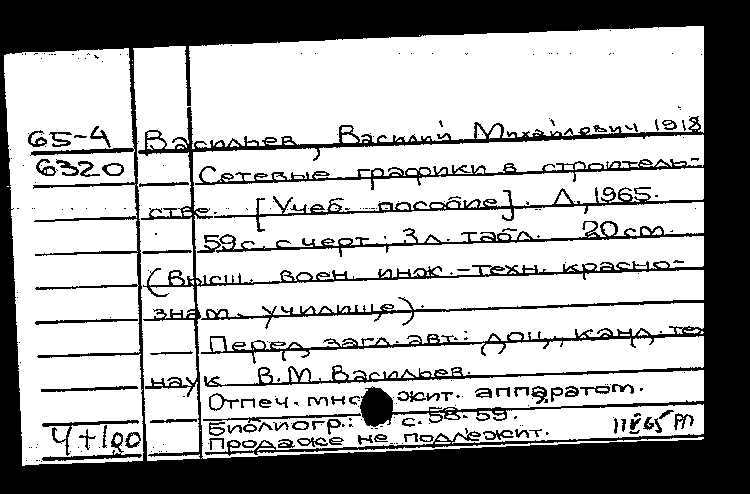 65-4 Васильев, Василий Михайлович, 1918
6320 Сетевые графики в строитель-
стве. [Учеб. пособие]. Л., 1965.
59 с. с черт.; 3 л. табл. 20 см.
(Высш. воен. инж.-техн. красно-
знам. училище).
Перед загл. авт.: доц., канд. те
наук В.М. Васильев.
Отпеч. мно жит. аппаратом.
Библиогр.: с. 58-59.
4+100 Продаже не подлежит.